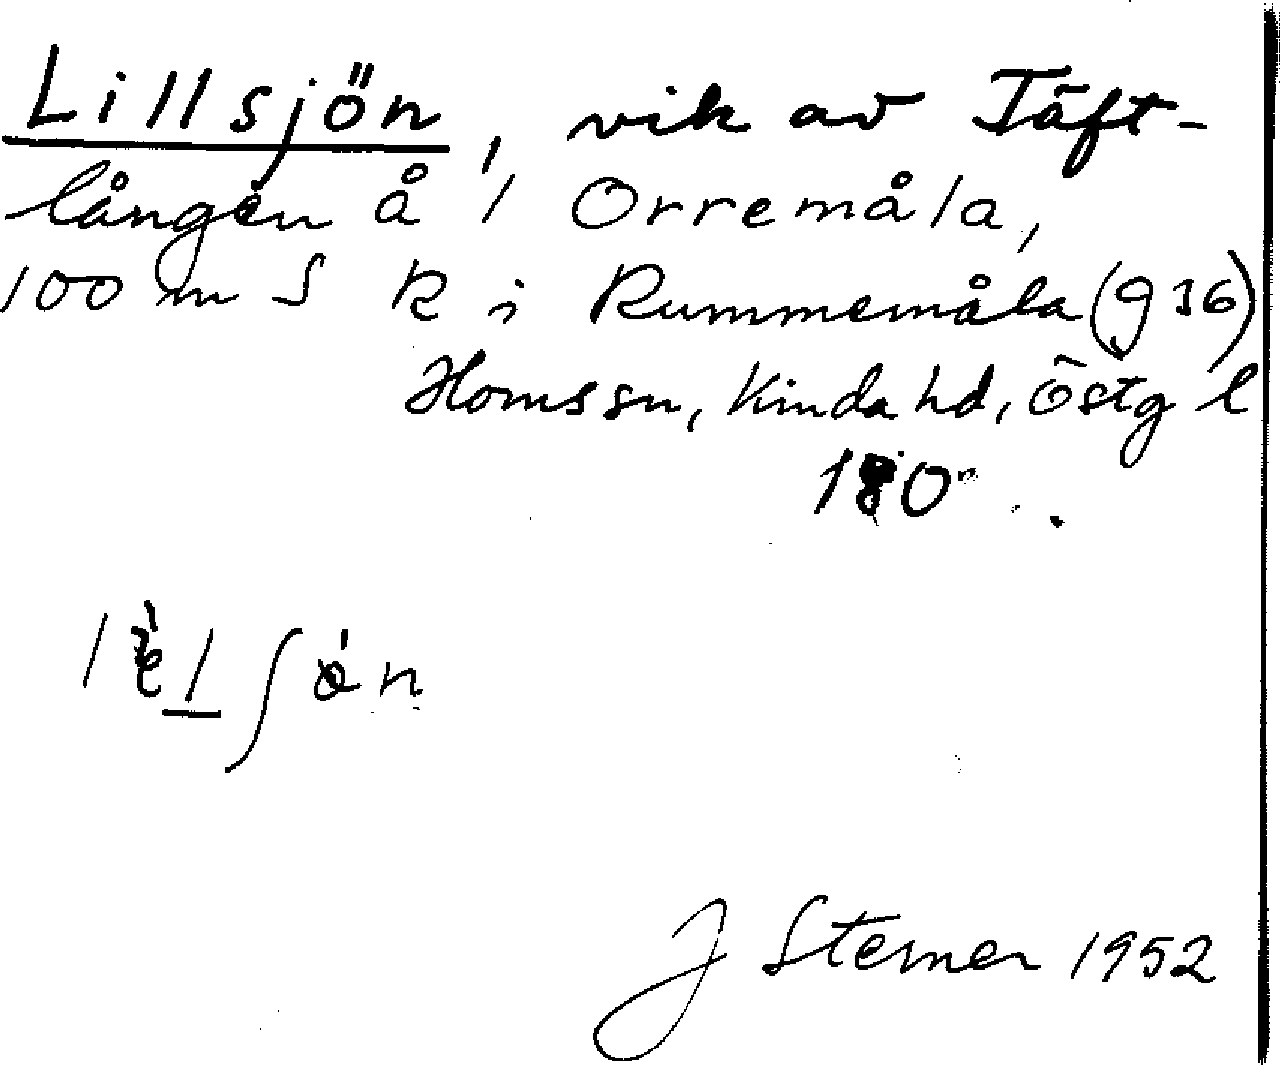 Lillsjön, vik av Täft-
lången å 1/1 Orremåla,
100 m S R i Rummemåla (g 36)
Homs sn, Kinda hd, Östg l
180
J Sterner 1952